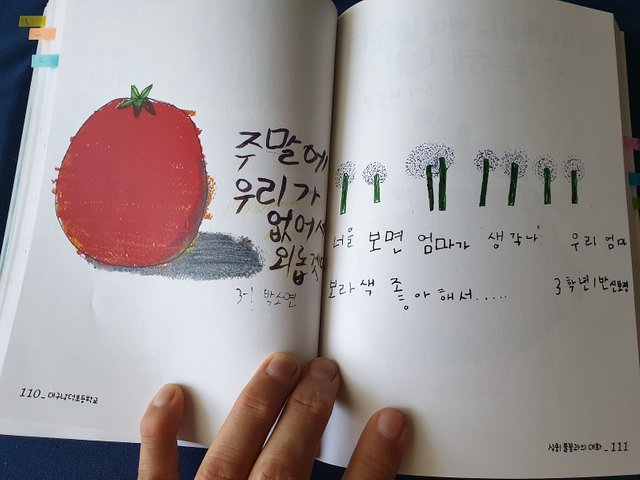 주말에
우리가
없어서
외롭겠
3-1 박소연
110_ 대구남덕초등학교
너를 보면 엄마가 생각나 우리 엄마
보라색 좋아해서.....
3학년 1반
시우! 풀꽃과의 대화_111